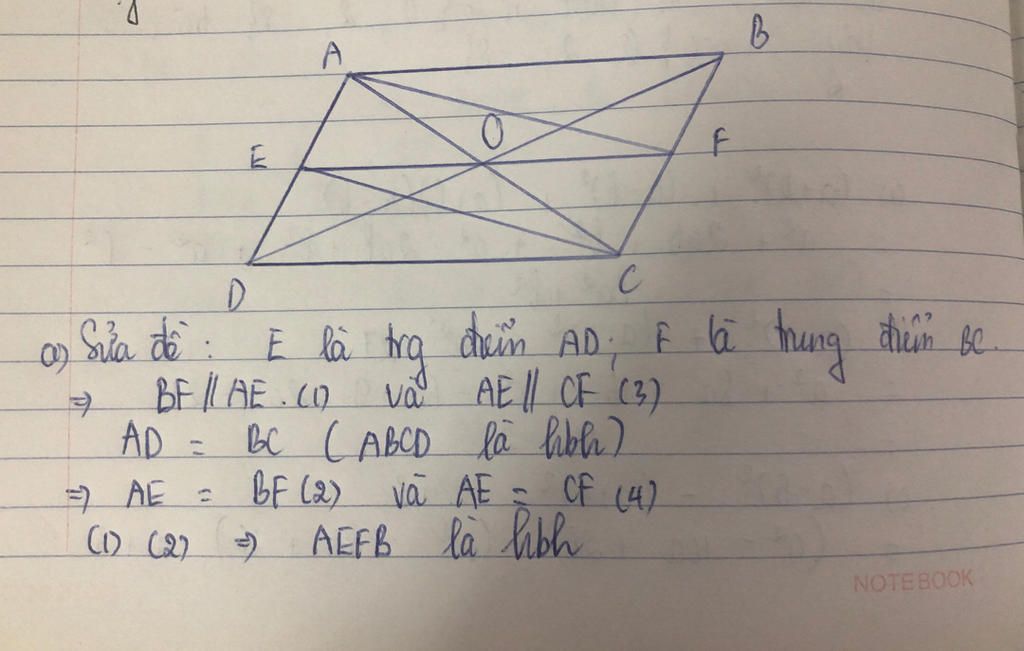 A
B
O
E
F
D
C
a) Sửa đề : E là trg điểm AD; F là trung điểm BC.
⇒ BF // AE . (1) và AE // CF (3)
AD = BC ( ABCD là hbh )
⇒ AE = BF (2) và AE = CF (4)
(1) (2) ⇒ AEFB là hbh
NOTEBOOK